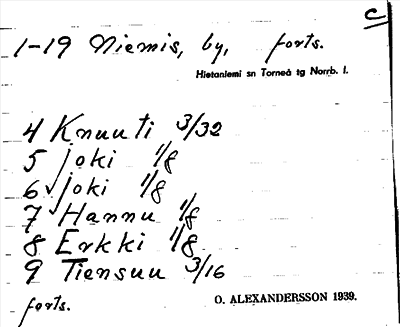 C
1-19 Niemis, by, forts.
Hietaniemi sn Torneå tg Norrb. l.
4 Knuuti 3/32
5 Joki 1/8
6 Joki 1/8
7 Hannu 1/8
8 Erkki 1/8
9 Tiensuu 3/16
forts.
O. ALEXANDERSSON 1939.